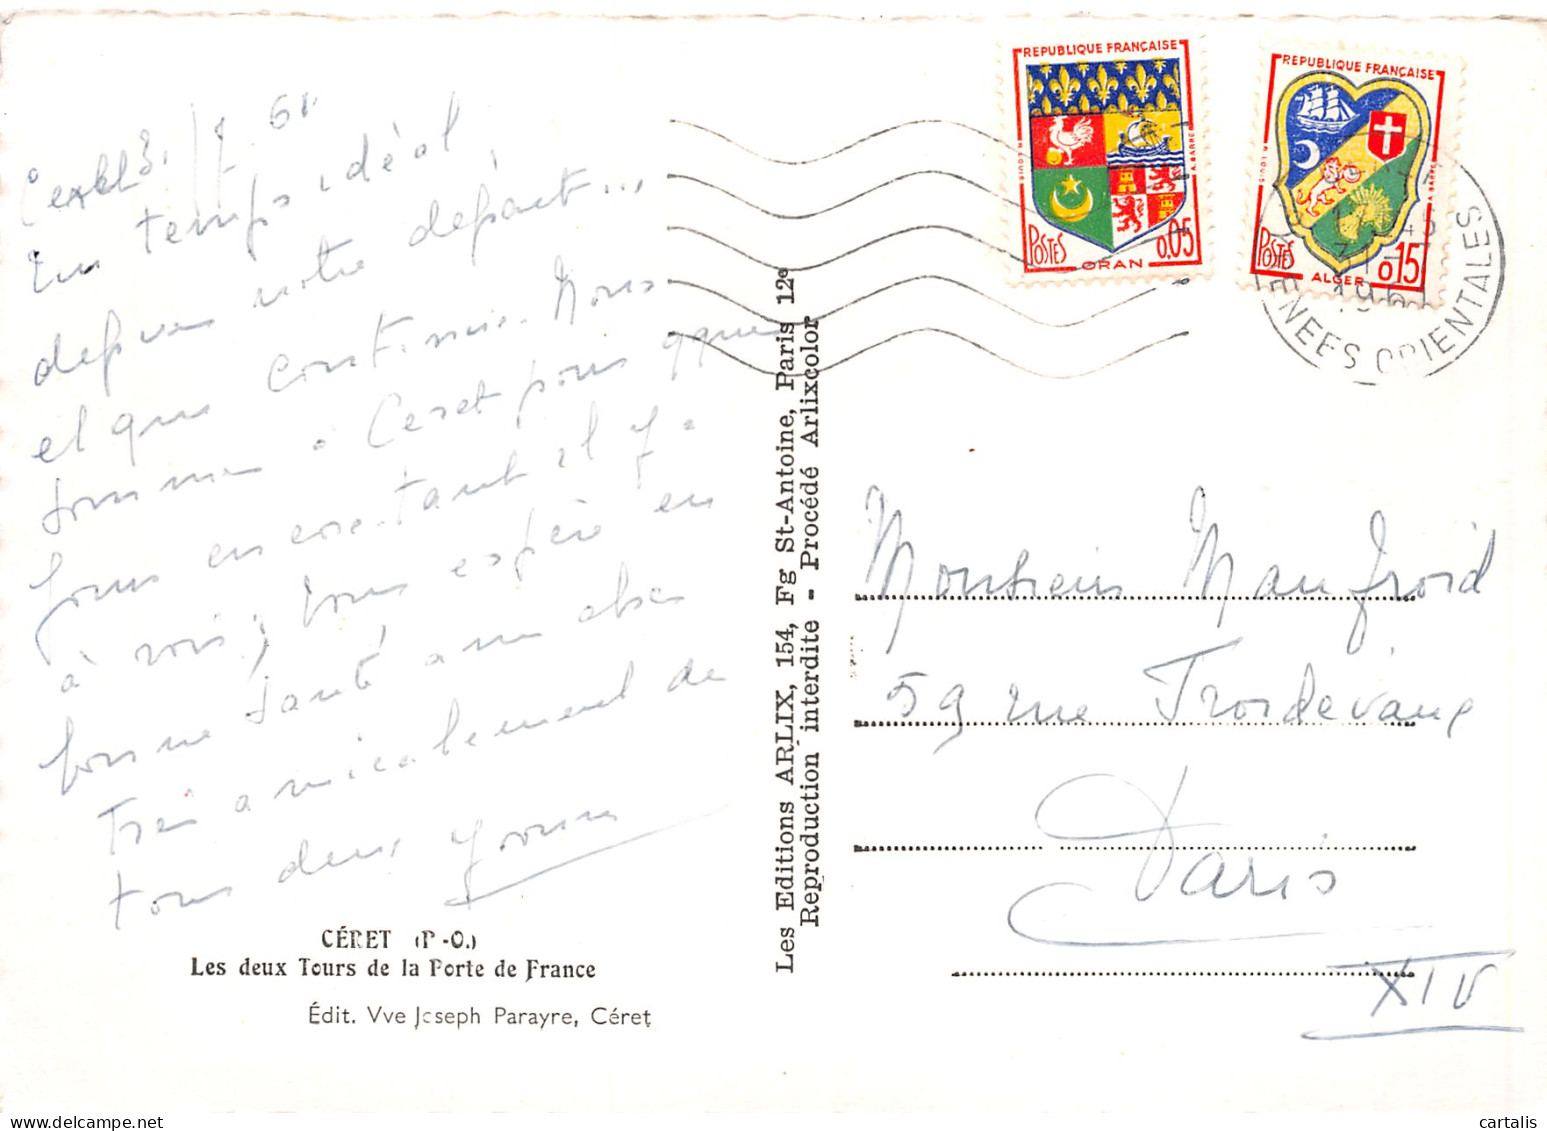 61
Un temps idéal
depuis notre départ...
et que continue. Nous
sommes à Céret pour quelques
jours en core. tant il y a
à voir; Vous espère en
bonne santé
Très amicalement de
tous deux Yvonne
CÉRET (P.-O.)
Les deux Tours de la Porte de France
Édit. Vve Joseph Parayre, Céret
Les Editions ARLIX, 154, Fg St-Antoine, Paris 12e
Reproduction interdite - Procédé Arlixcolor
REPUBLIQUE FRANÇAISE
POSTES
0,05
ORAN
REPUBLIQUE FRANÇAISE
POSTES
0,15
ALGER
ORIENTALES
Monsieur Maufroid
59 rue
Paris
XIV
cartalis
delcampe.net